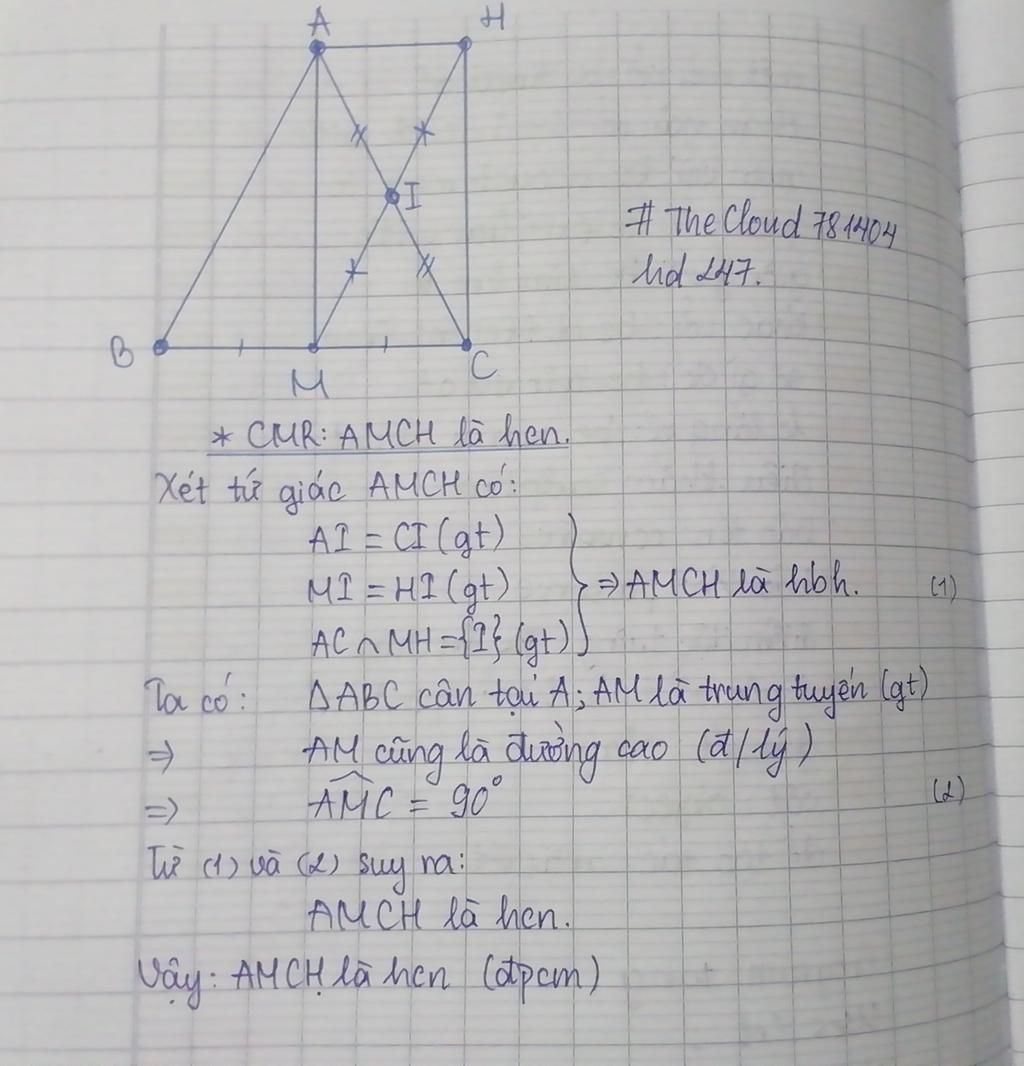 A H
I
# The Cloud 781404
hd 247.
B M C
* CMR: AMCH là hcn.
Xét tứ giác AMCH có:
AI = CI (gt)
MI = HI (gt)
AC ∩ MH = {I} (gt)
⇒ AMCH là hbh. (1)
Ta có: ΔABC cân tại A; AM là trung tuyến (gt)
⇒ AM cũng là đường cao (đ/lý)
⇒ \widehat{AMC} = 90° (2)
Từ (1) và (2) suy ra:
AMCH là hcn.
Vậy: AMCH là hcn (đpcm)